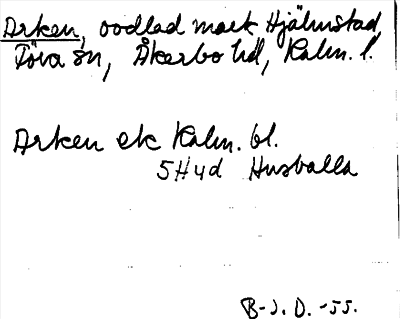 Arken, oodlad mark Hjälmstad,
Föra sn, Åkerbo hd, Kalm. l.
Arken ek Kalm. bl.
5Hyd Husvalla
B-J. D. -55.